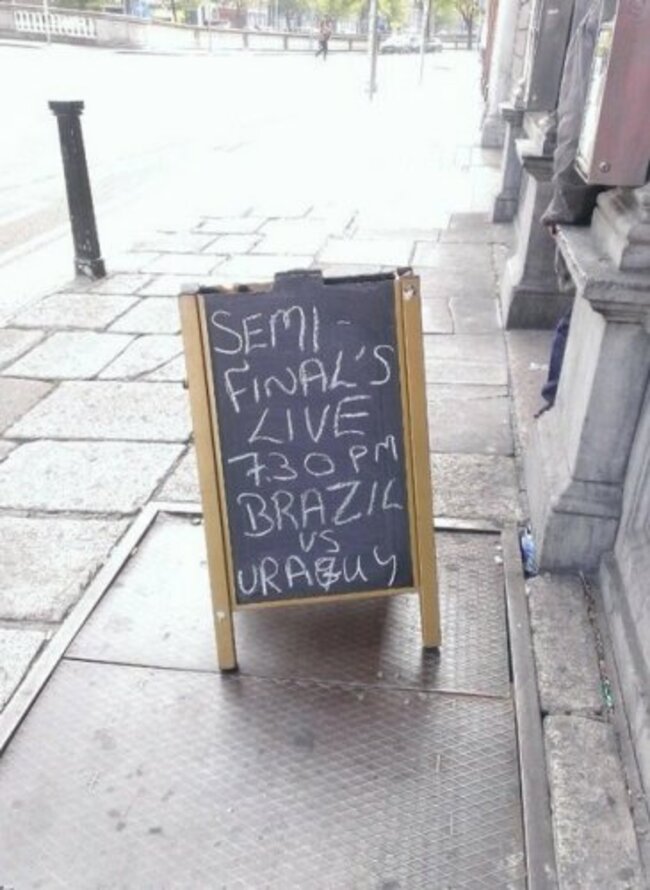 SEMI-
FINAL'S
LIVE
7.30 PM
BRAZIL
VS
URAGUY